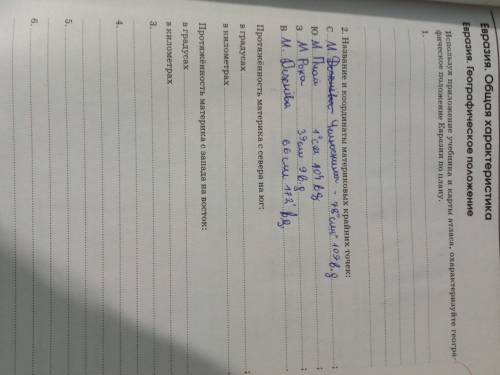 Евразия. Общая характеристика
Евразия. Географическое положение
Используя приложение учебника и карты атласа, охарактеризуйте геогра-
фическое положение Евразии по плану.
1.
2. Название и координаты материковых крайних точек:
С М Челюскина - 78°сш 104 в.д ;
Ю М Пиай 1°сш 104 в д ;
З М Рока 39сш 9 в.д ;
В М. Дежнёва 66 сш 172 в.д.
Протяжённость материка с севера на юг:
в градусах ;
в километрах
Протяжённость материка с запада на восток:
в градусах
в километрах
3.
4.
5.
6.